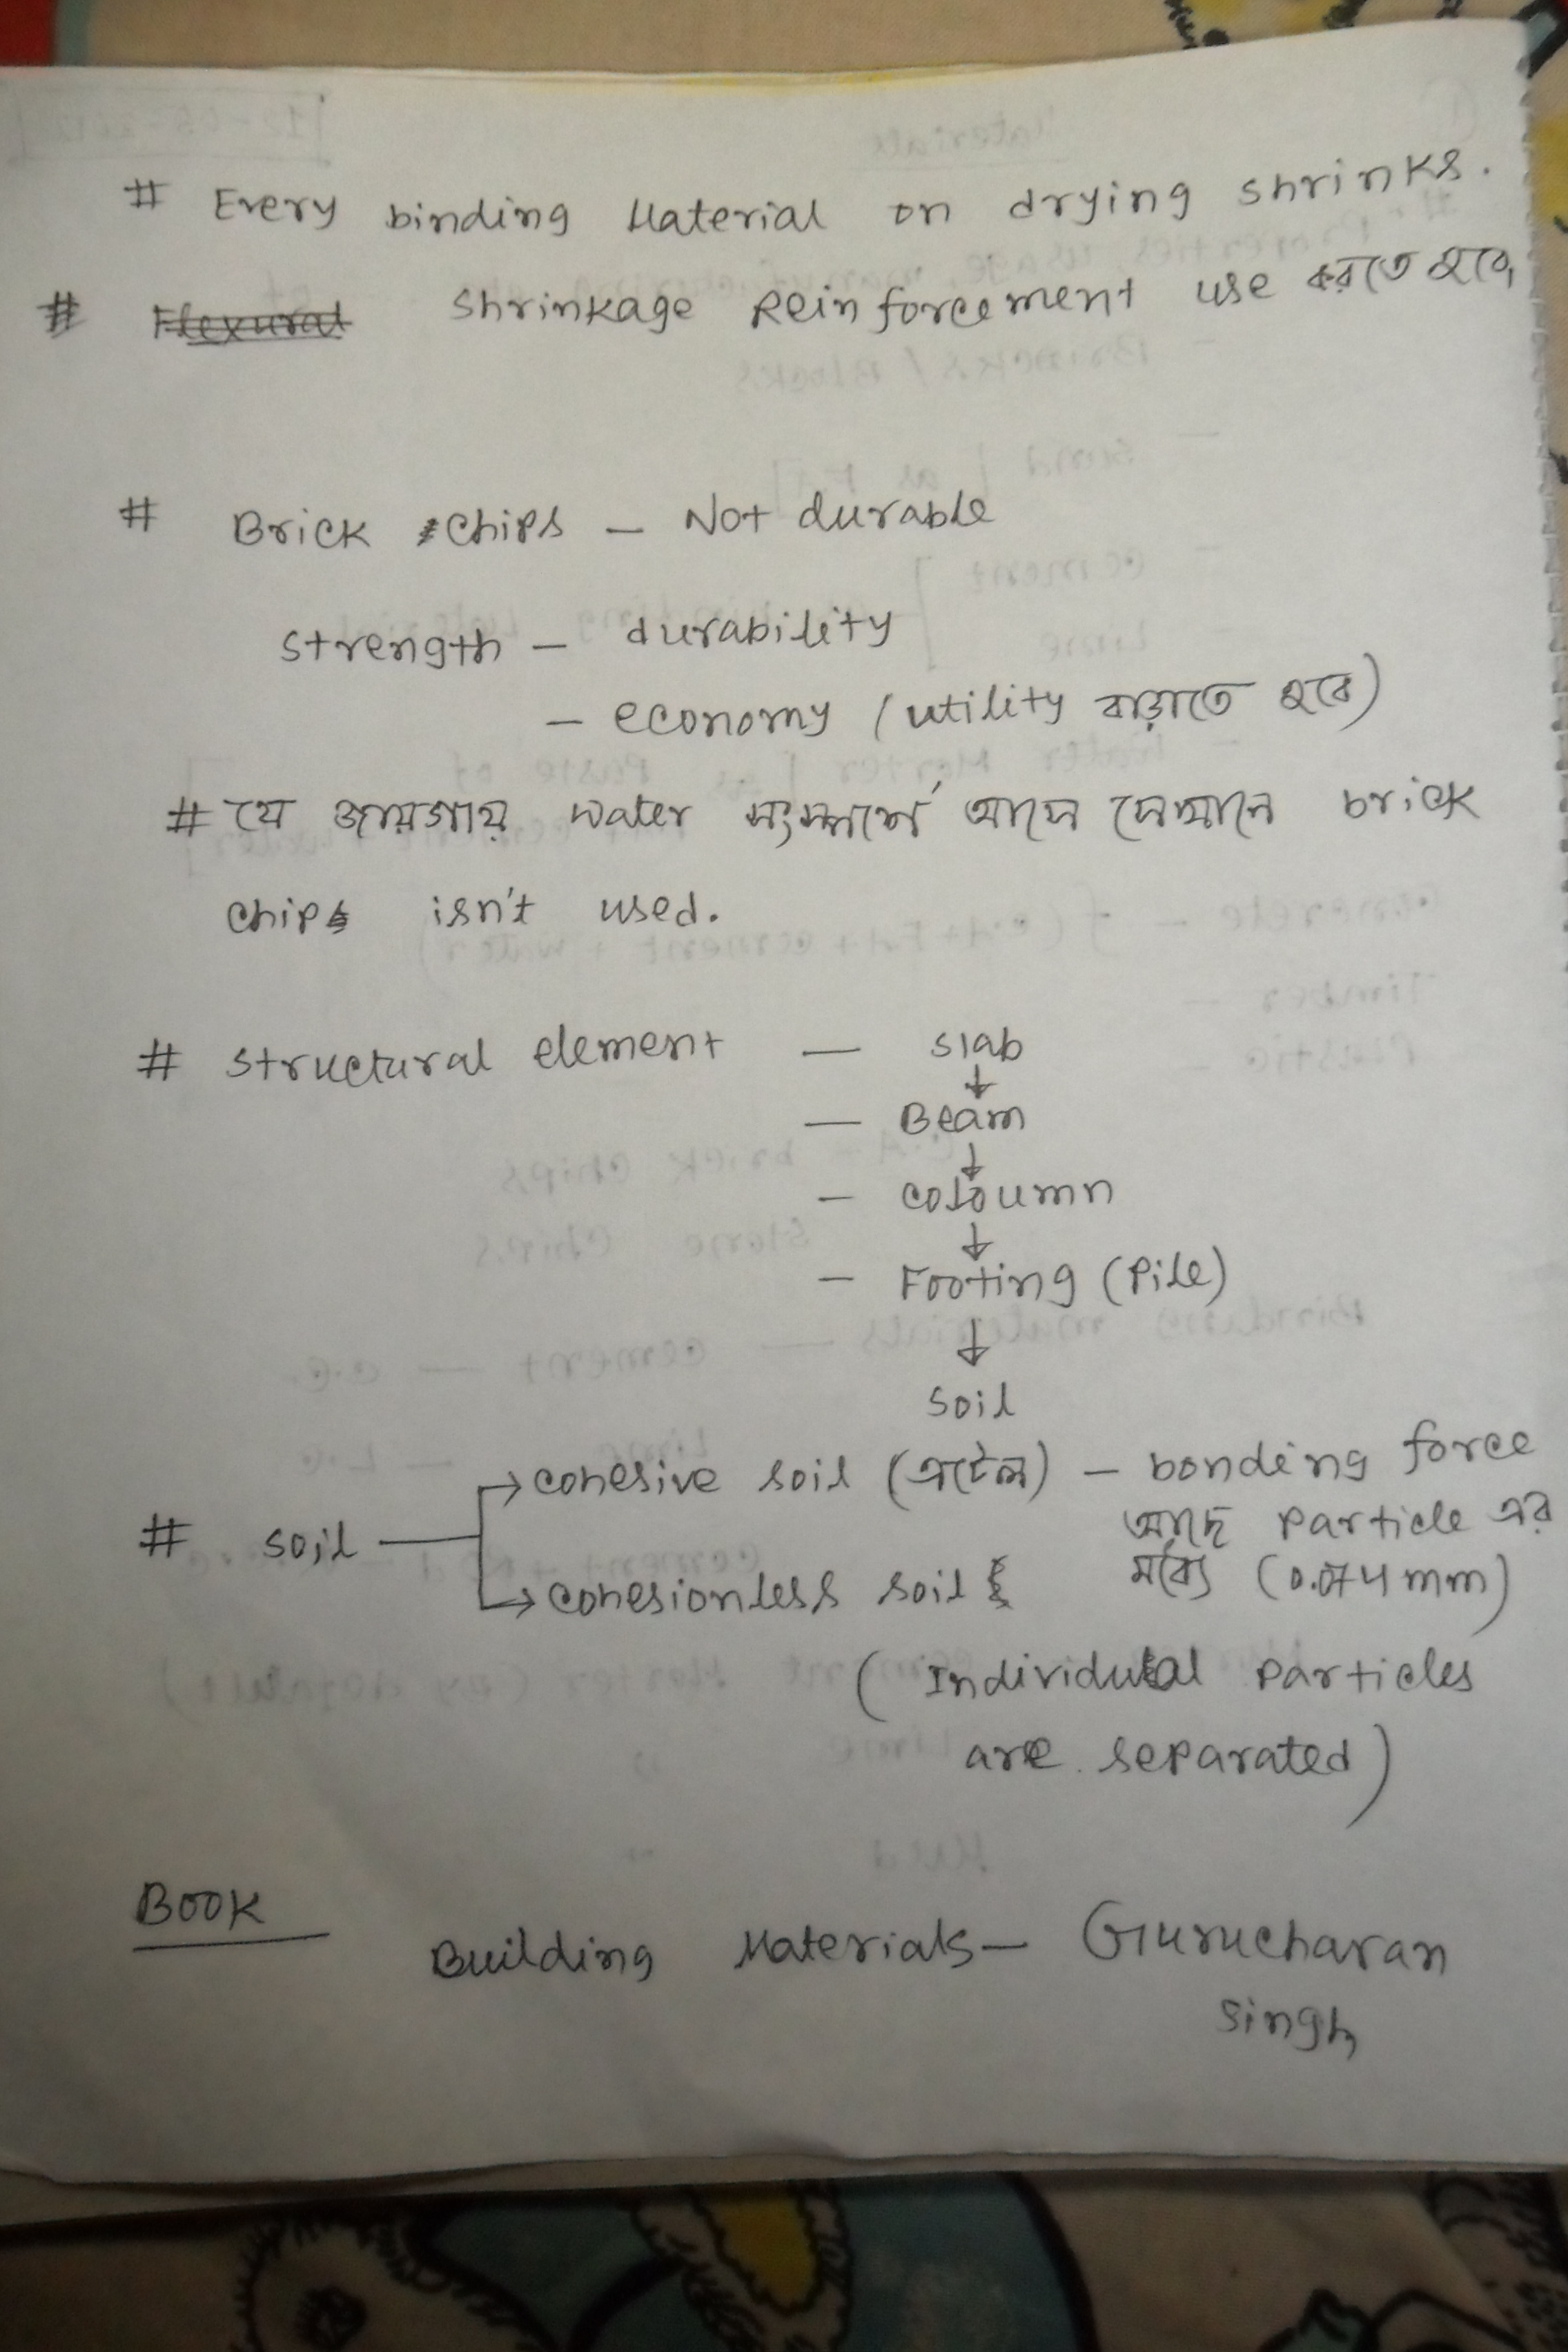 # Every binding Material on drying shrinks.
# Flexural shrinkage Reinforcement use করতে হবে,
# Brick chips – Not durable
strength – durability
– economy (utility বাড়াতে হবে)
# যে জায়গায় water সংস্পর্শে আসে সেখানে brick
chips isn't used.
# structural element — slab
↓
— Beam
↓
– coloumn
↓
– Footing (Pile)
↓
soil
# soil → cohesive soil (এটেল) – bonding force
আছে particle এর
মধ্যে (0.074 mm)
→ cohesionless soil
(Individual particles
are separated)
Book
Building Materials – Gurucharan
singh